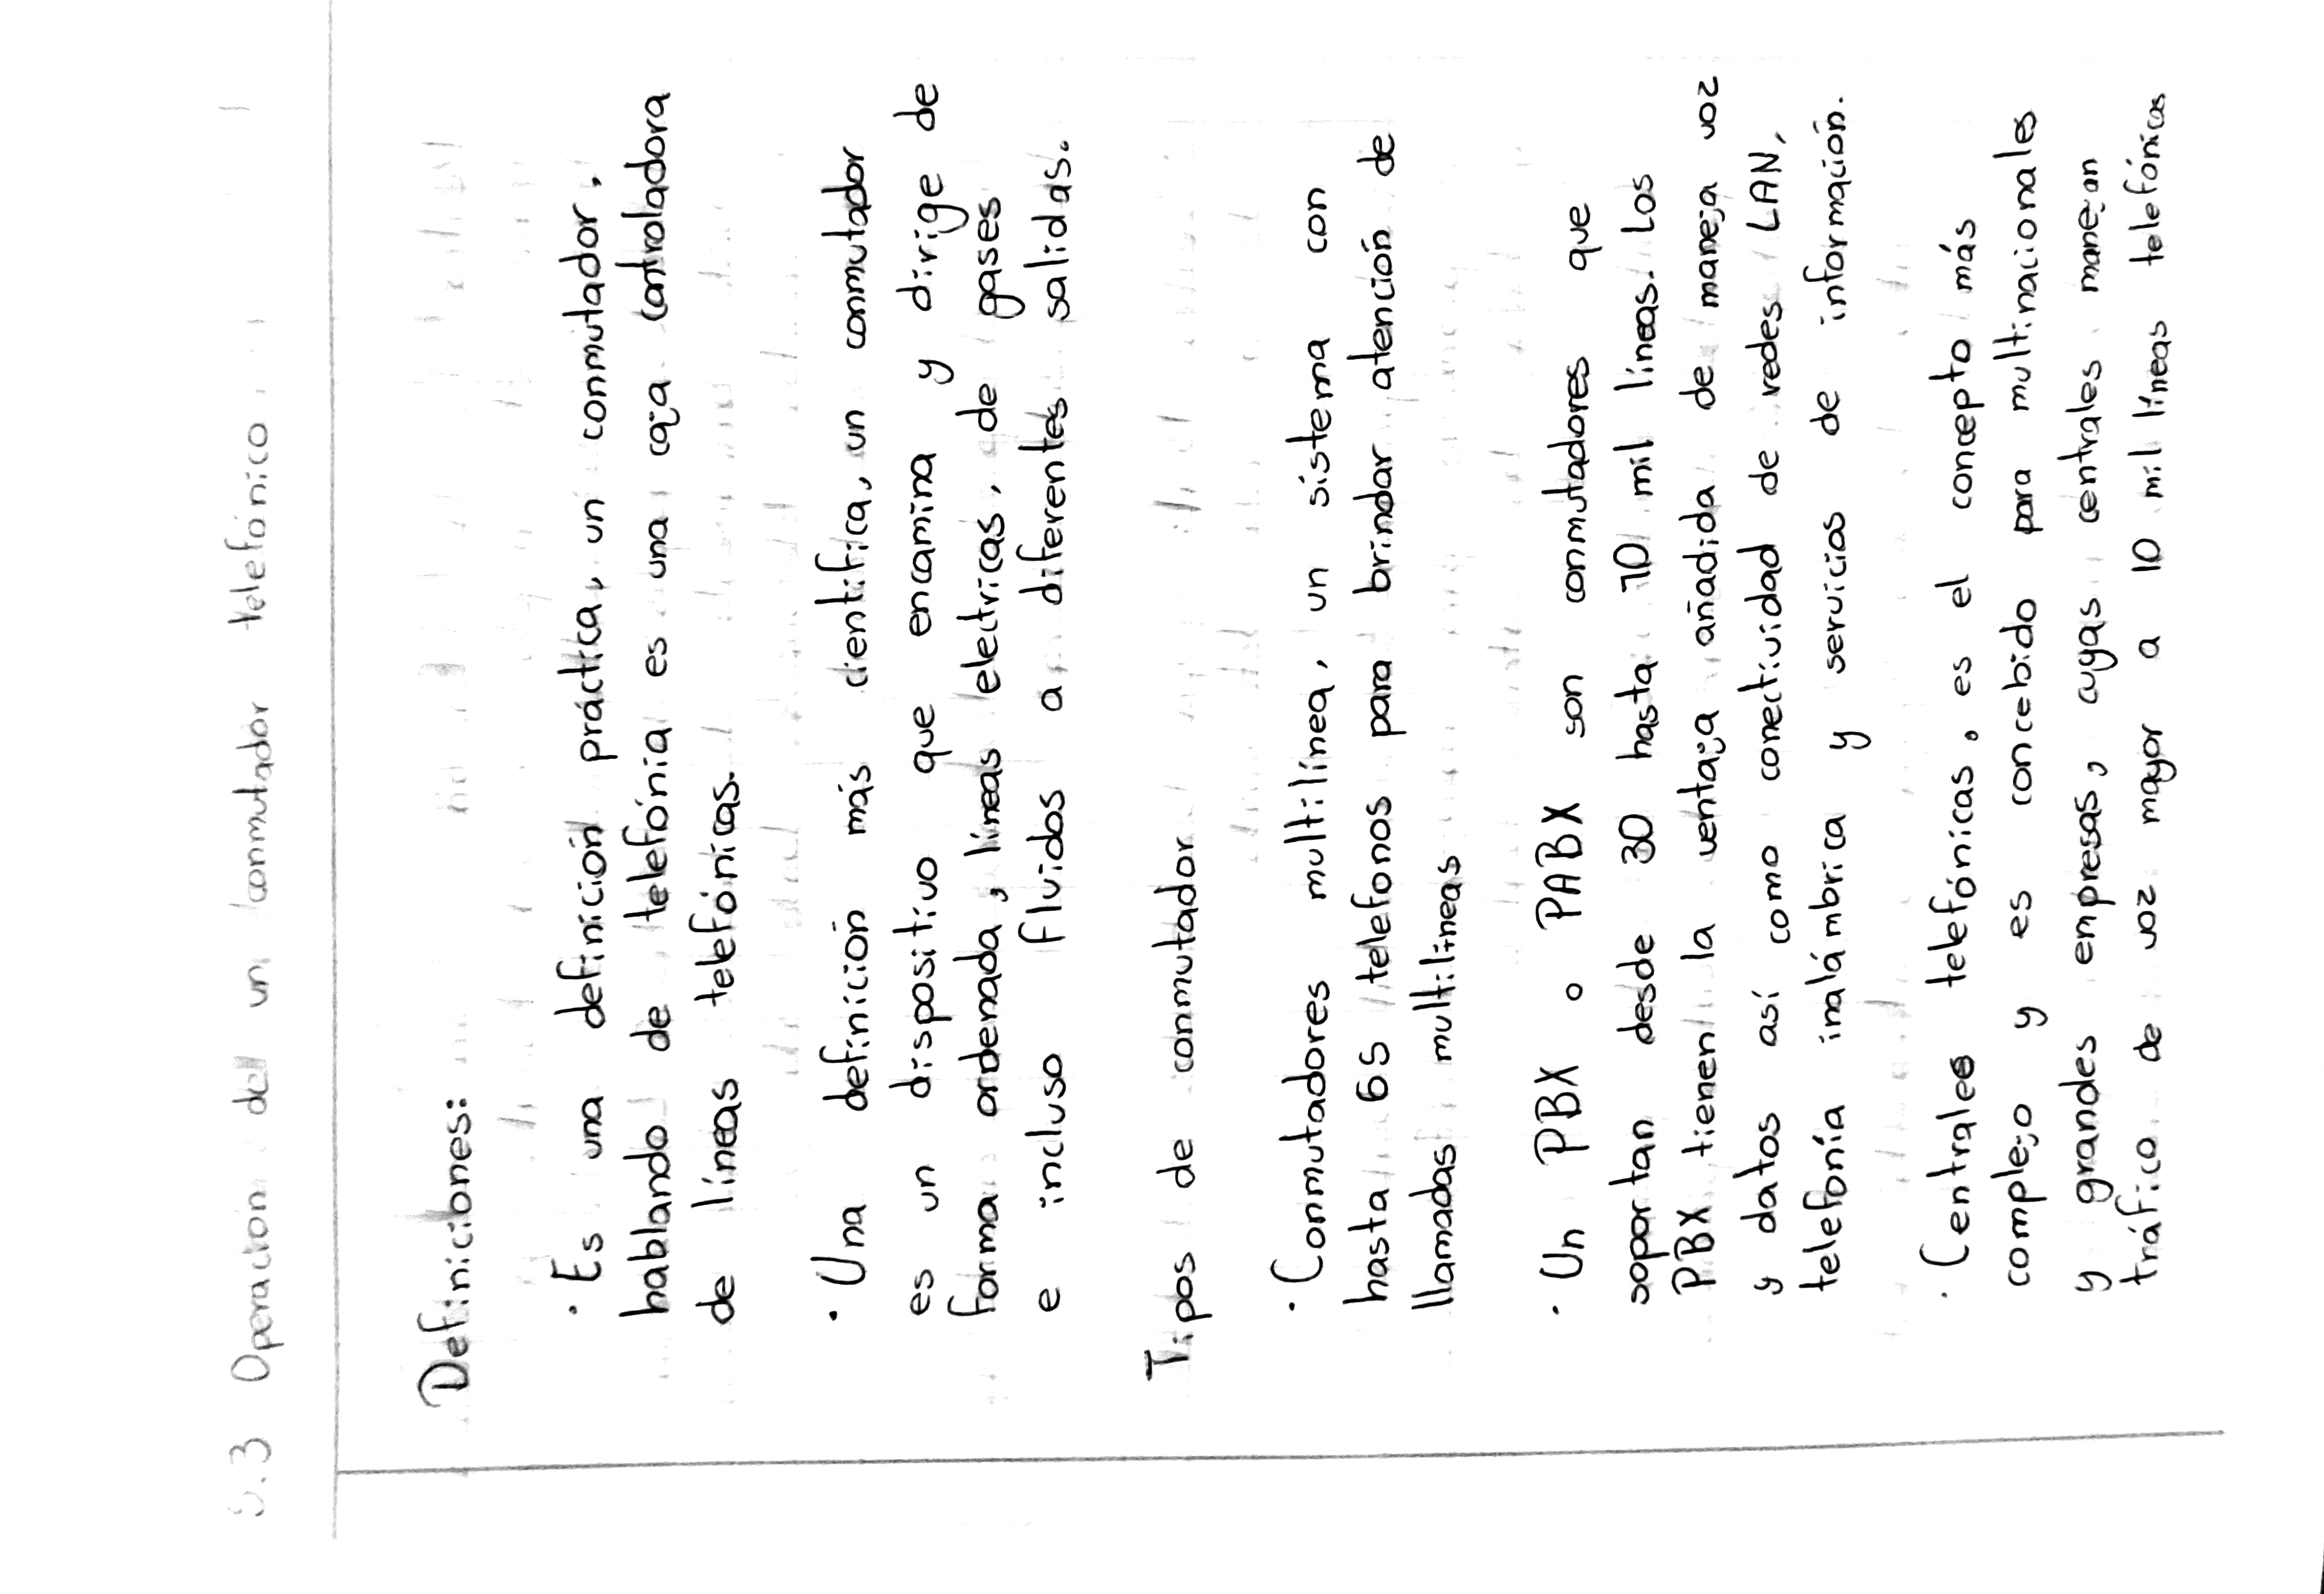 5.3 Operacion de un conmutador telefónico
Definiciones:
· Es una definición práctica, un conmutador,
hablando de telefónia es una caja controladora
de líneas telefónicas.
· Una definición más cientifica, un conmutador
es un dispositivo que encamina y dirige de
forma ordenada, líneas electricas, de gases
e incluso fluidos a diferentes salidas.
Tipos de conmutador
· Conmutadores multilínea, un sistema con
hasta 65 telefonos para brindar atención de
llamadas multilineas
· Un PBX o PABX son conmutadores que
soportan desde 30 hasta 10 mil líneas. Los
PBX tienen la ventaja añadida de maneja voz
y datos así como conectividad de redes LAN,
telefonía inalámbrica y servicios de información.
· Centrales telefónicas, es el concepto más
complejo y es concebido para multinacionales
y grandes empresas, cuyas centrales manejan
tráfico de voz mayor a 10 mil líneas telefónicas